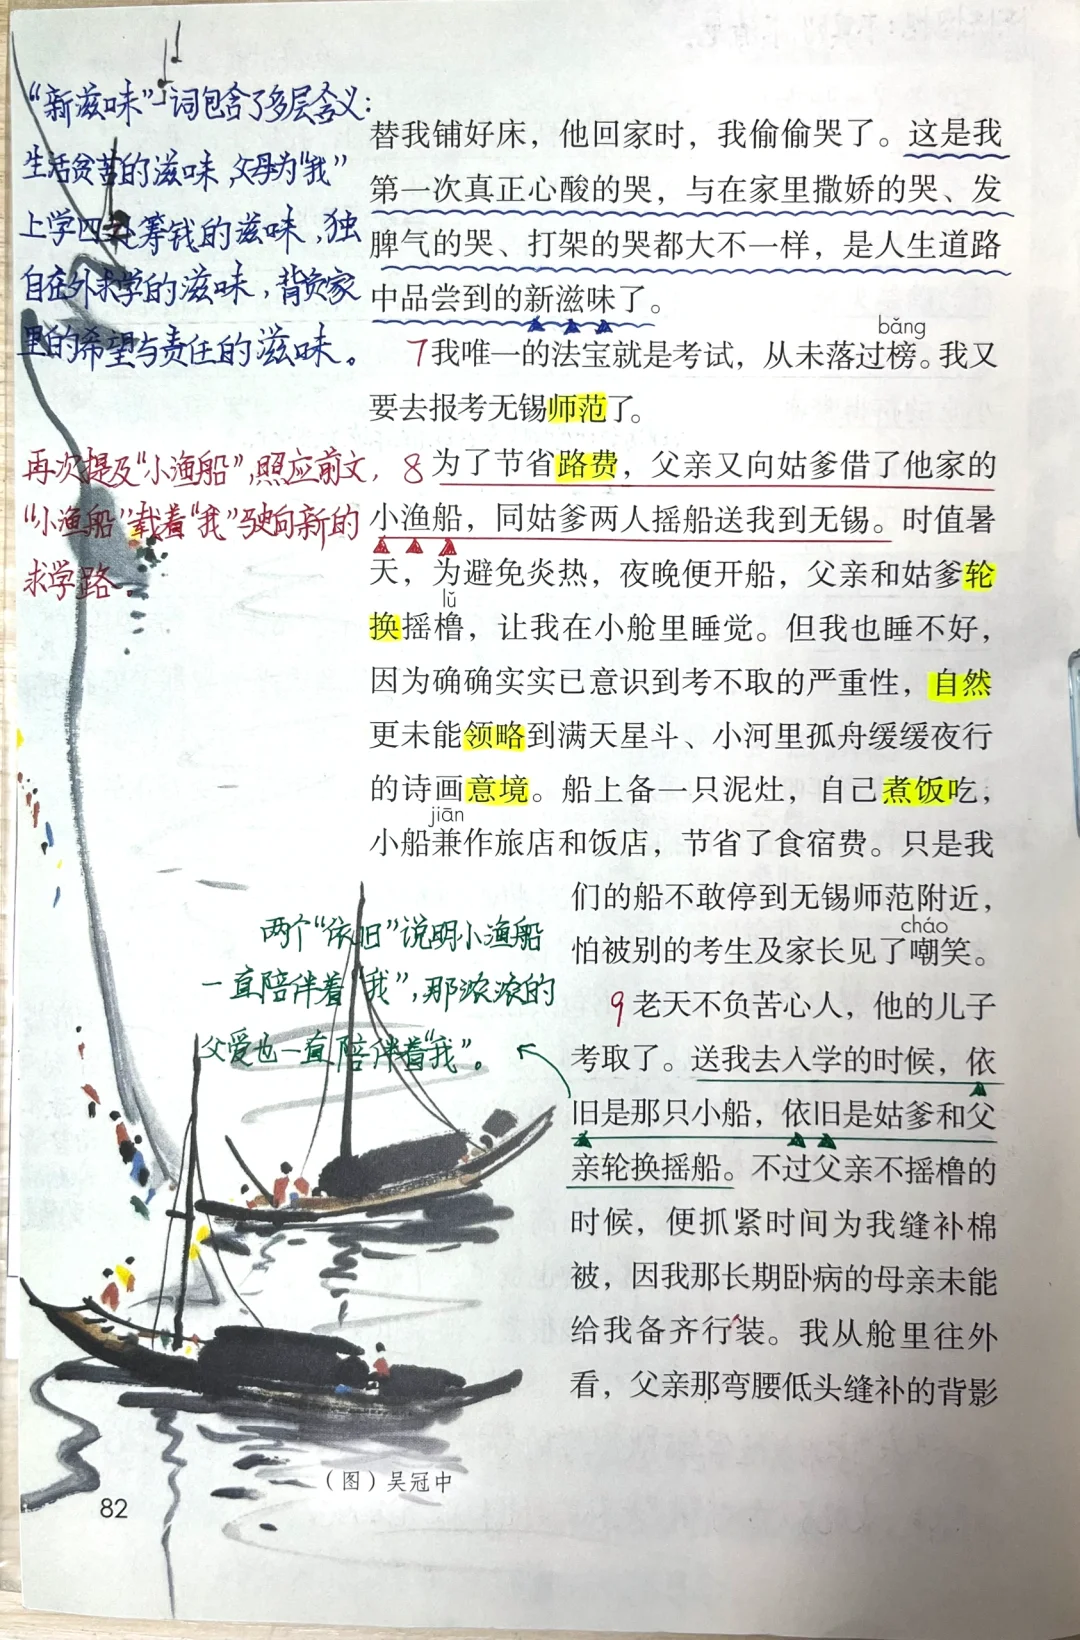 “新滋味”一词包含了多层含义：
生活贫苦的滋味，父母为“我”
上学四处筹钱的滋味，独
自在外求学的滋味，背负家
里的希望与责任的滋味。
替我铺好床，他回家时，我偷偷哭了。这是我
第一次真正心酸的哭，与在家里撒娇的哭、发
脾气的哭、打架的哭都大不一样，是人生道路
中品尝到的新滋味了。
bǎng
7我唯一的法宝就是考试，从未落过榜。我又
要去报考无锡师范了。
再次提及“小渔船”，照应前文，
“小渔船”载着“我”驶向新的
求学路。
8为了节省路费，父亲又向姑爹借了他家的
小渔船，同姑爹两人摇船送我到无锡。时值暑
天，为避免炎热，夜晚便开船，父亲和姑爹轮
lǔ
换摇橹，让我在小舱里睡觉。但我也睡不好，
因为确确实实已意识到考不取的严重性，自然
更未能领略到满天星斗、小河里孤舟缓缓夜行
的诗画意境。船上备一只泥灶，自己煮饭吃，
jiān
小船兼作旅店和饭店，节省了食宿费。只是我
们的船不敢停到无锡师范附近，
cháo
怕被别的考生及家长见了嘲笑。
两个“依旧”说明小渔船
一直陪伴着“我”，那浓浓的
父爱也一直陪伴着“我”。
9老天不负苦心人，他的儿子
考取了。送我去入学的时候，依
旧是那只小船，依旧是姑爹和父
亲轮换摇船。不过父亲不摇橹的
时候，便抓紧时间为我缝补棉
被，因我那长期卧病的母亲未能
给我备齐行装。我从舱里往外
看，父亲那弯腰低头缝补的背影
（图）吴冠中
82